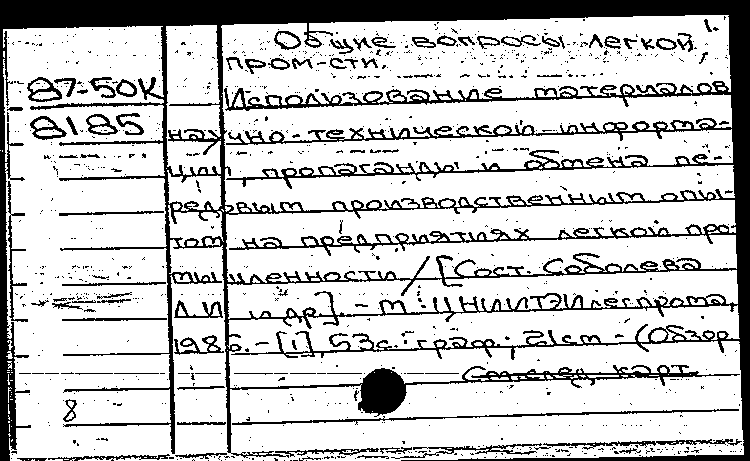 1.
Общие вопросы легкой
пром-сти.
87-50К
Использование материалов
8185
научно-технической информа-
ции, пропаганды и обмена пе-
редовым производственным опы-
том на предприятиях легкой про-
мышленности / [Сост. Соболева
Л. И. и др.]. - М : ЦНИИТЭИлегпрома,
1986. - [1], 53с. : граф.; 21см - (Обзор
См. след. карт.
8